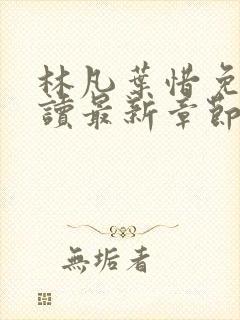 林凡葉惜免
讀最新章節
無垢者